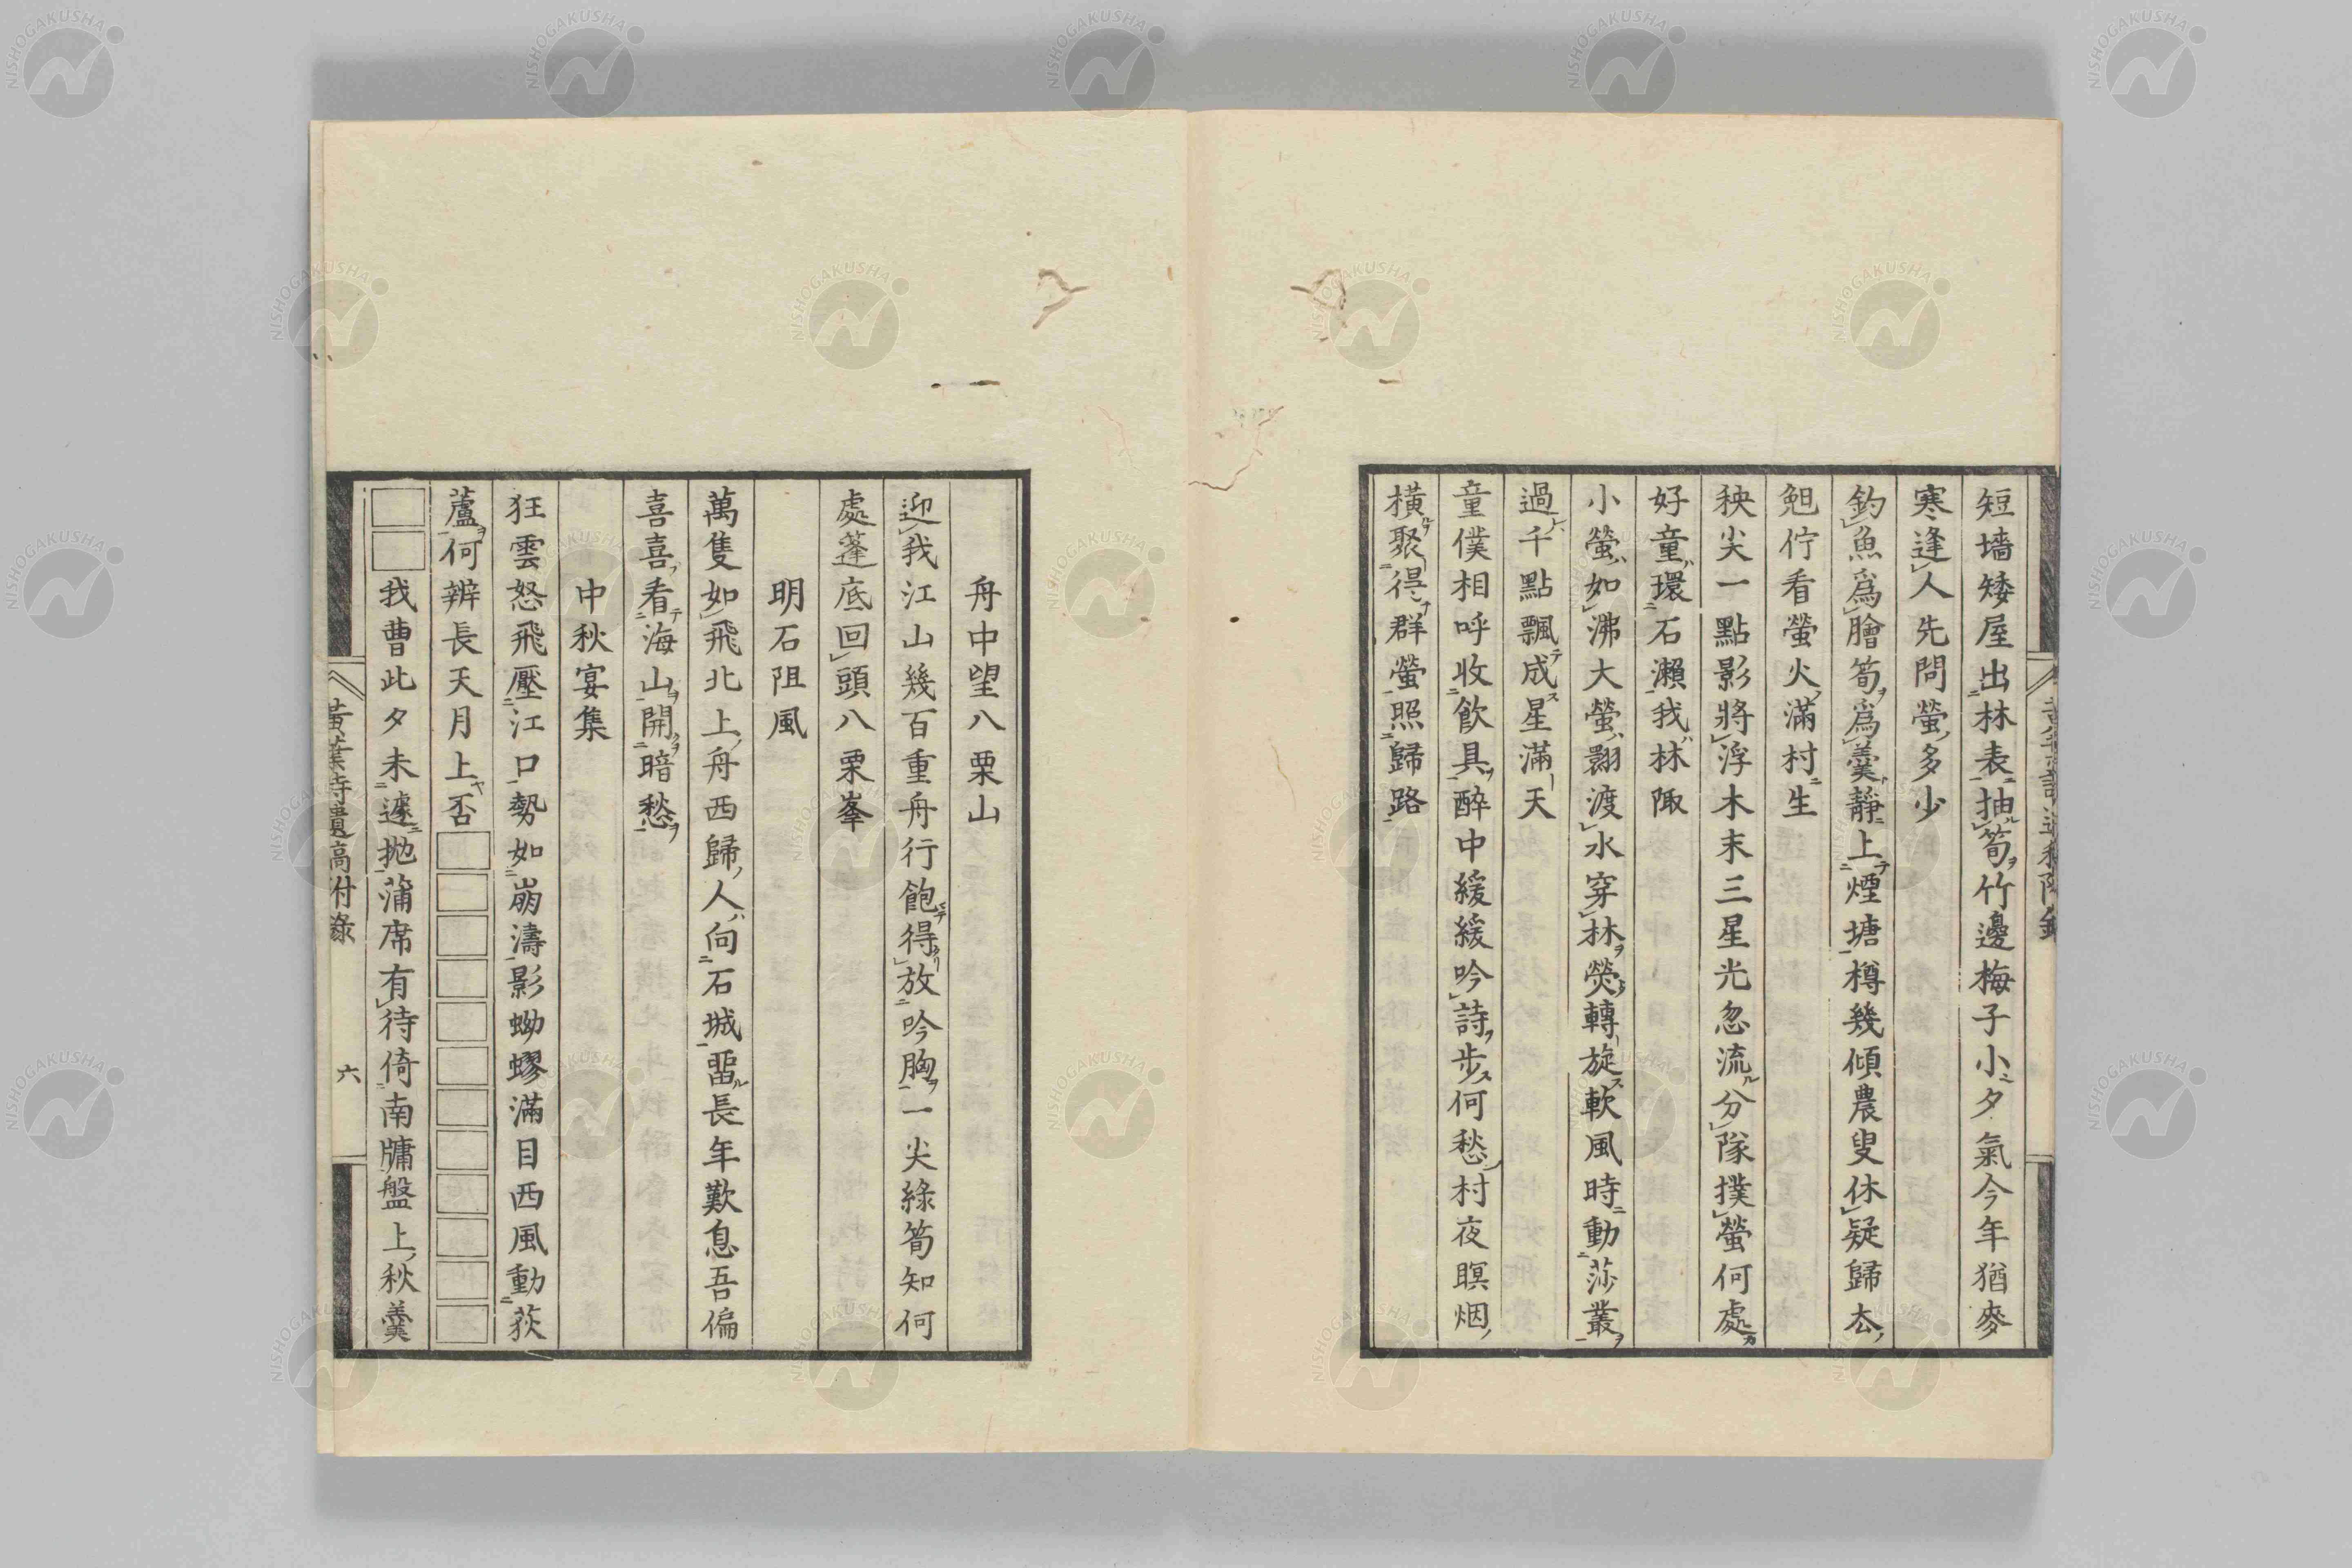 短墻矮屋出林表抽筍竹邊梅子小夕氣今年猶麥
寒逢人先問螢多少
釣魚爲膾筍爲羹靜上煙塘樽幾傾農叟休疑歸去
佇看螢火滿村生
秧尖一點影將浮木末三星光忽流分隊撲螢何處
好童環石瀨我林陬
小螢如沸大螢翾渡水穿林熒轉旋軟風時動莎叢
過千點飄成星滿天
童僕相呼收飲具醉中緩緩吟詩步何愁村夜瞑烟
橫聚得群螢照歸路
舟中望八栗山
迎我江山幾百重舟行飽得放吟胸一尖綠筍知何
處蓬底回頭八栗峯
明石阻風
萬隻如飛北上舟西歸人向石城留長年歎息吾偏
喜喜看海山開暗愁
中秋宴集
狂雲怒飛壓江口勢如崩濤影蚴蟉滿目西風動荻
蘆何辨長天月上否□□□□□□□□□□□□
□□我曹此夕未遽抛蒲席有待倚南牗盤上秋羹
黃葉詩遺高附錄
六
NISHOGAKUSHA